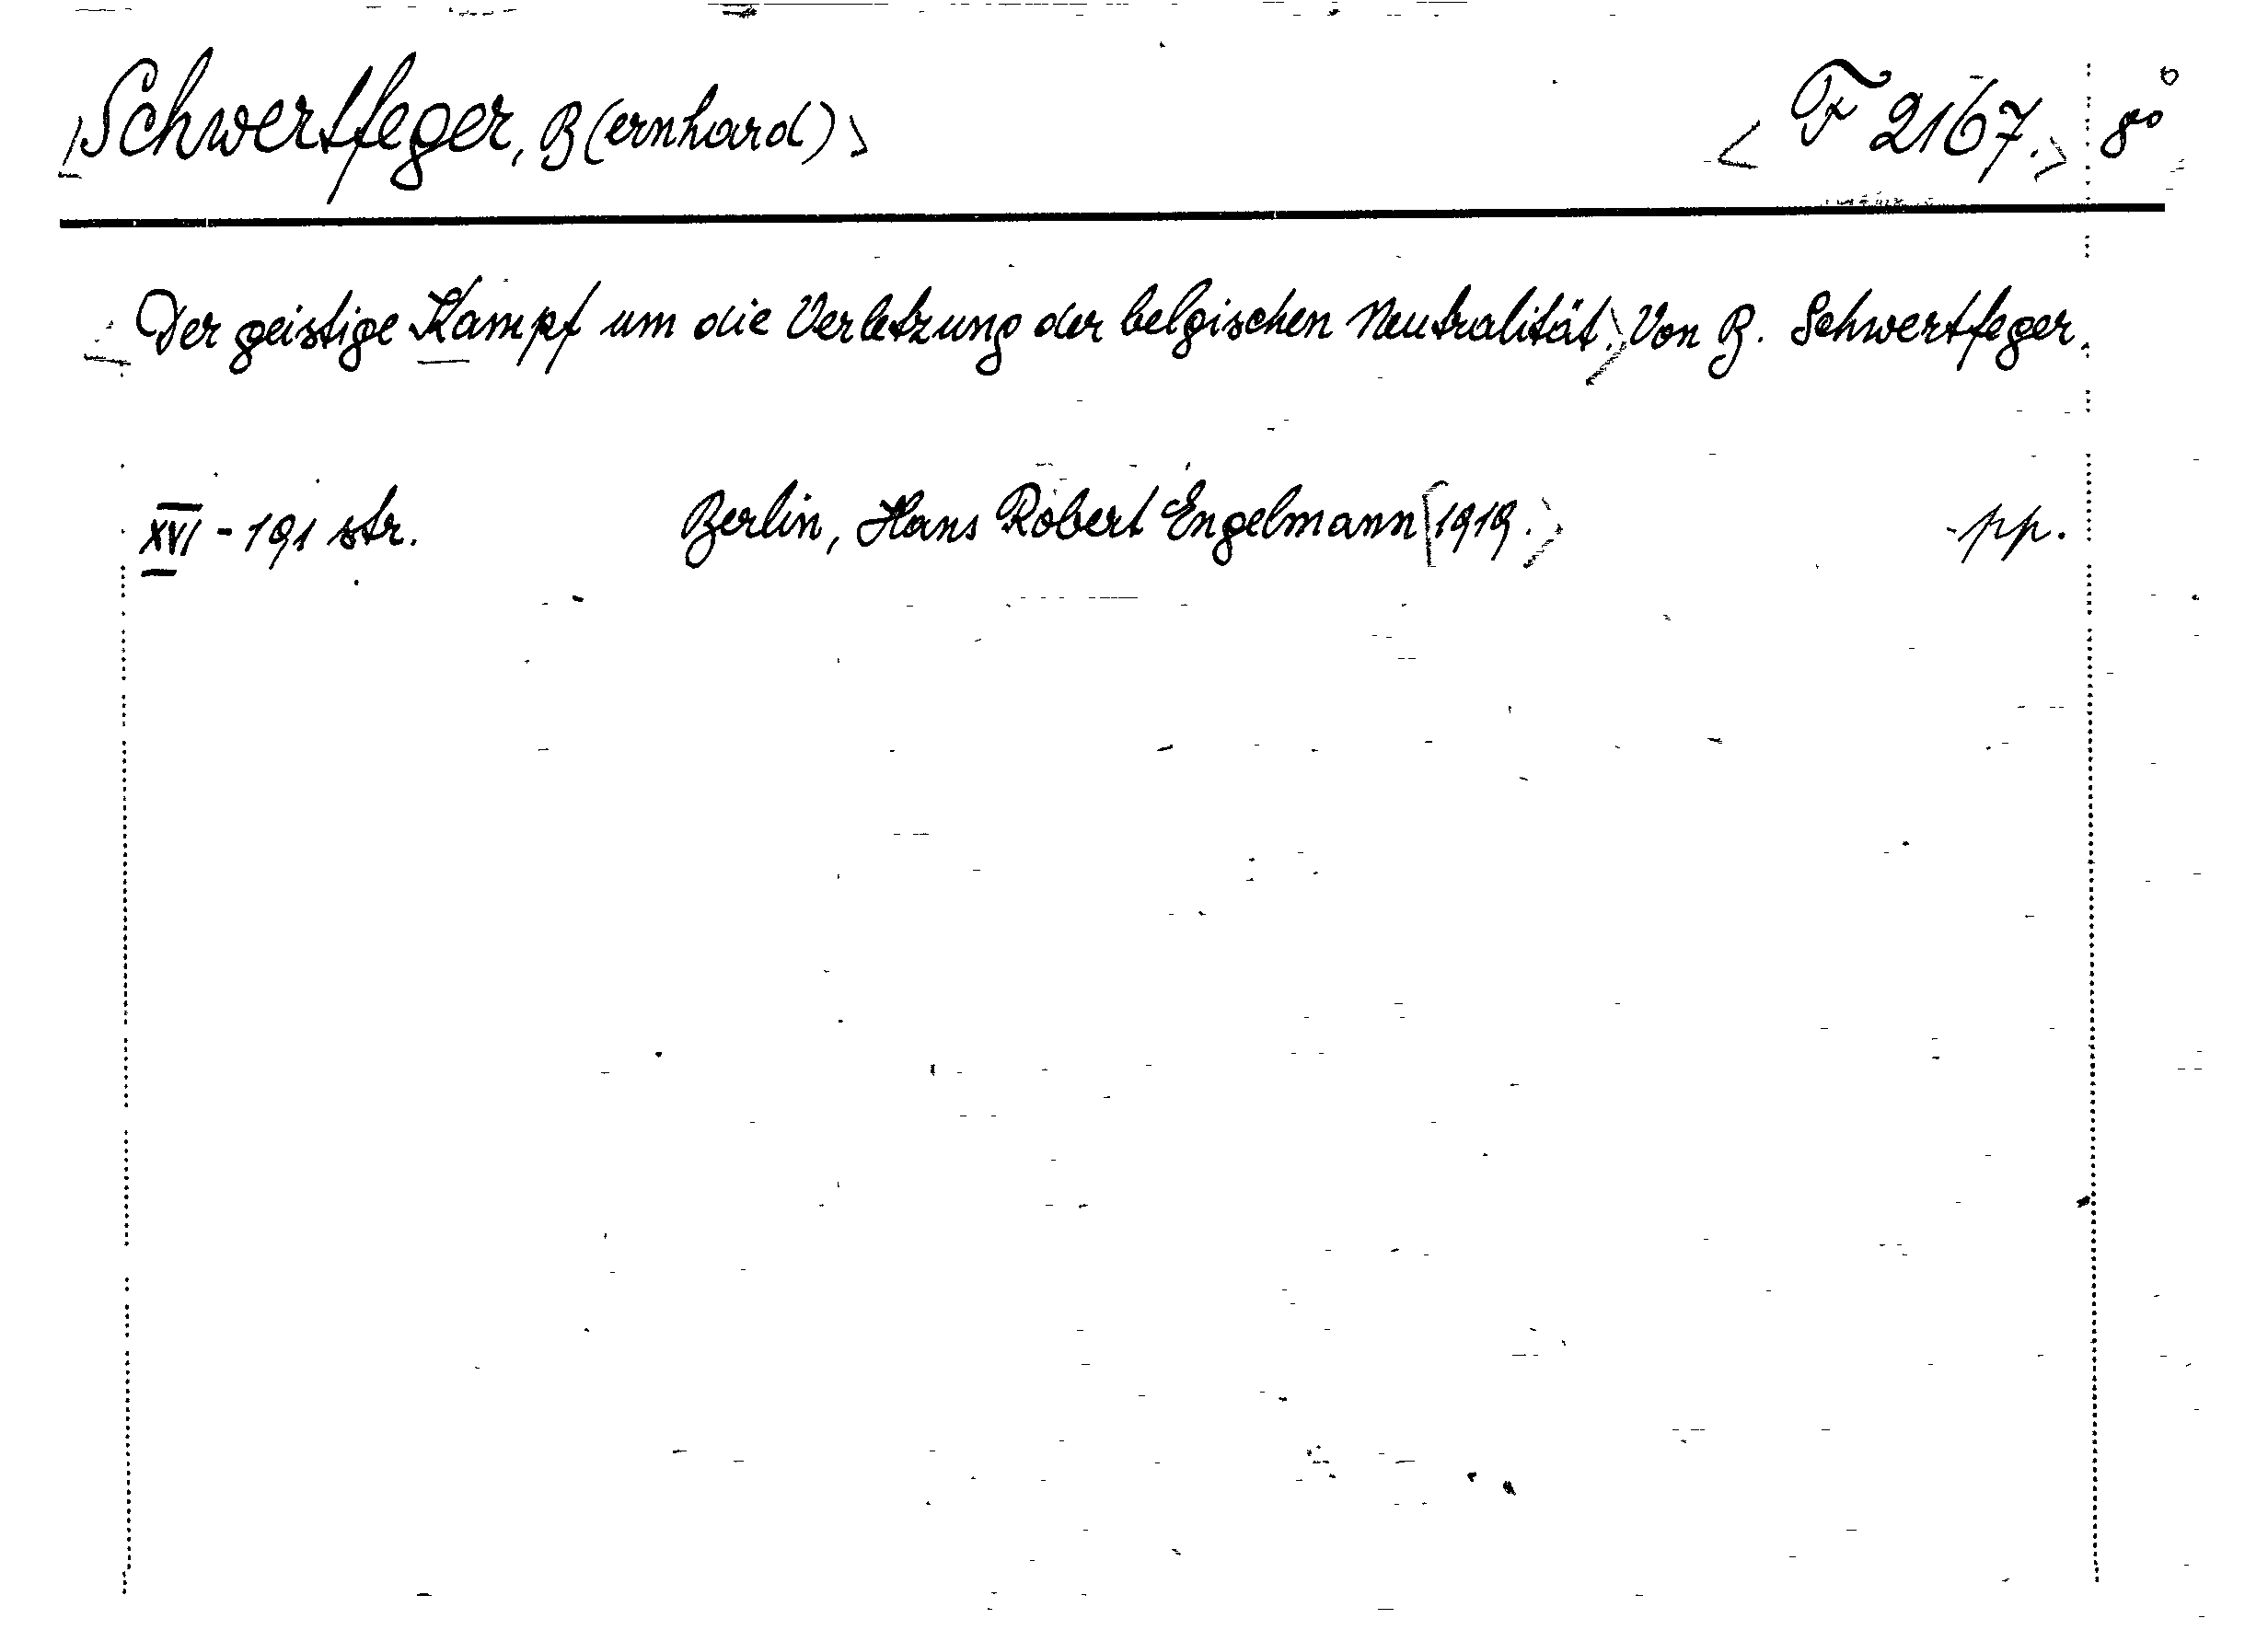 Schwertfeger, B(ernhard) F 2167. 8°
Der geistige Kampf um die Verletzung der belgischen Neutralität. Von B. Schwertfeger.
XVI - 191 str. Berlin, Hans Robert Engelmann 1919. -pp.